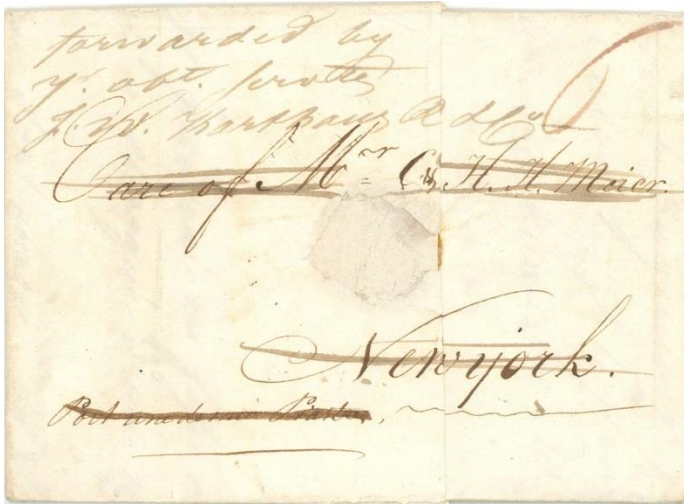 forwarded by
yr. obt. servts
J. W. Karthaus & Co
Care of Mr C. H. H. Meier.
Newyork.